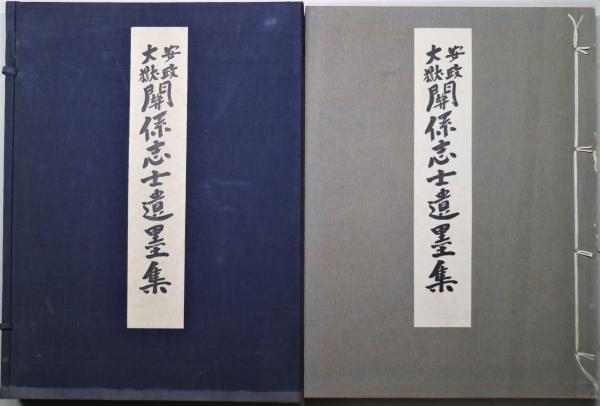 安政
大獄
關係志士遺墨集
安政
大獄
關係志士遺墨集